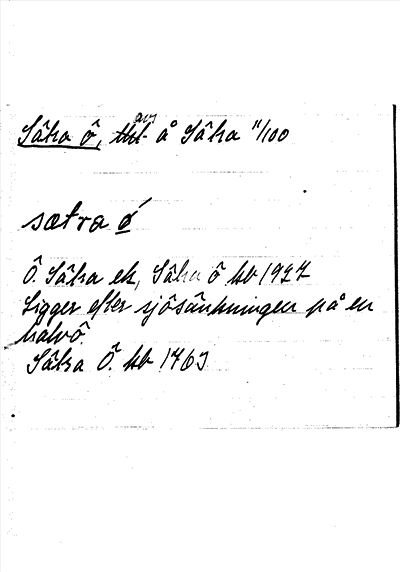 Sätra ö, avs å Sätra 11/100
sætra ǿ
Ö. Sätra ek, Sätra ö kb 1927
Ligger efter sjösänkningen på en
halvö
Sätra Ö. kb 1763